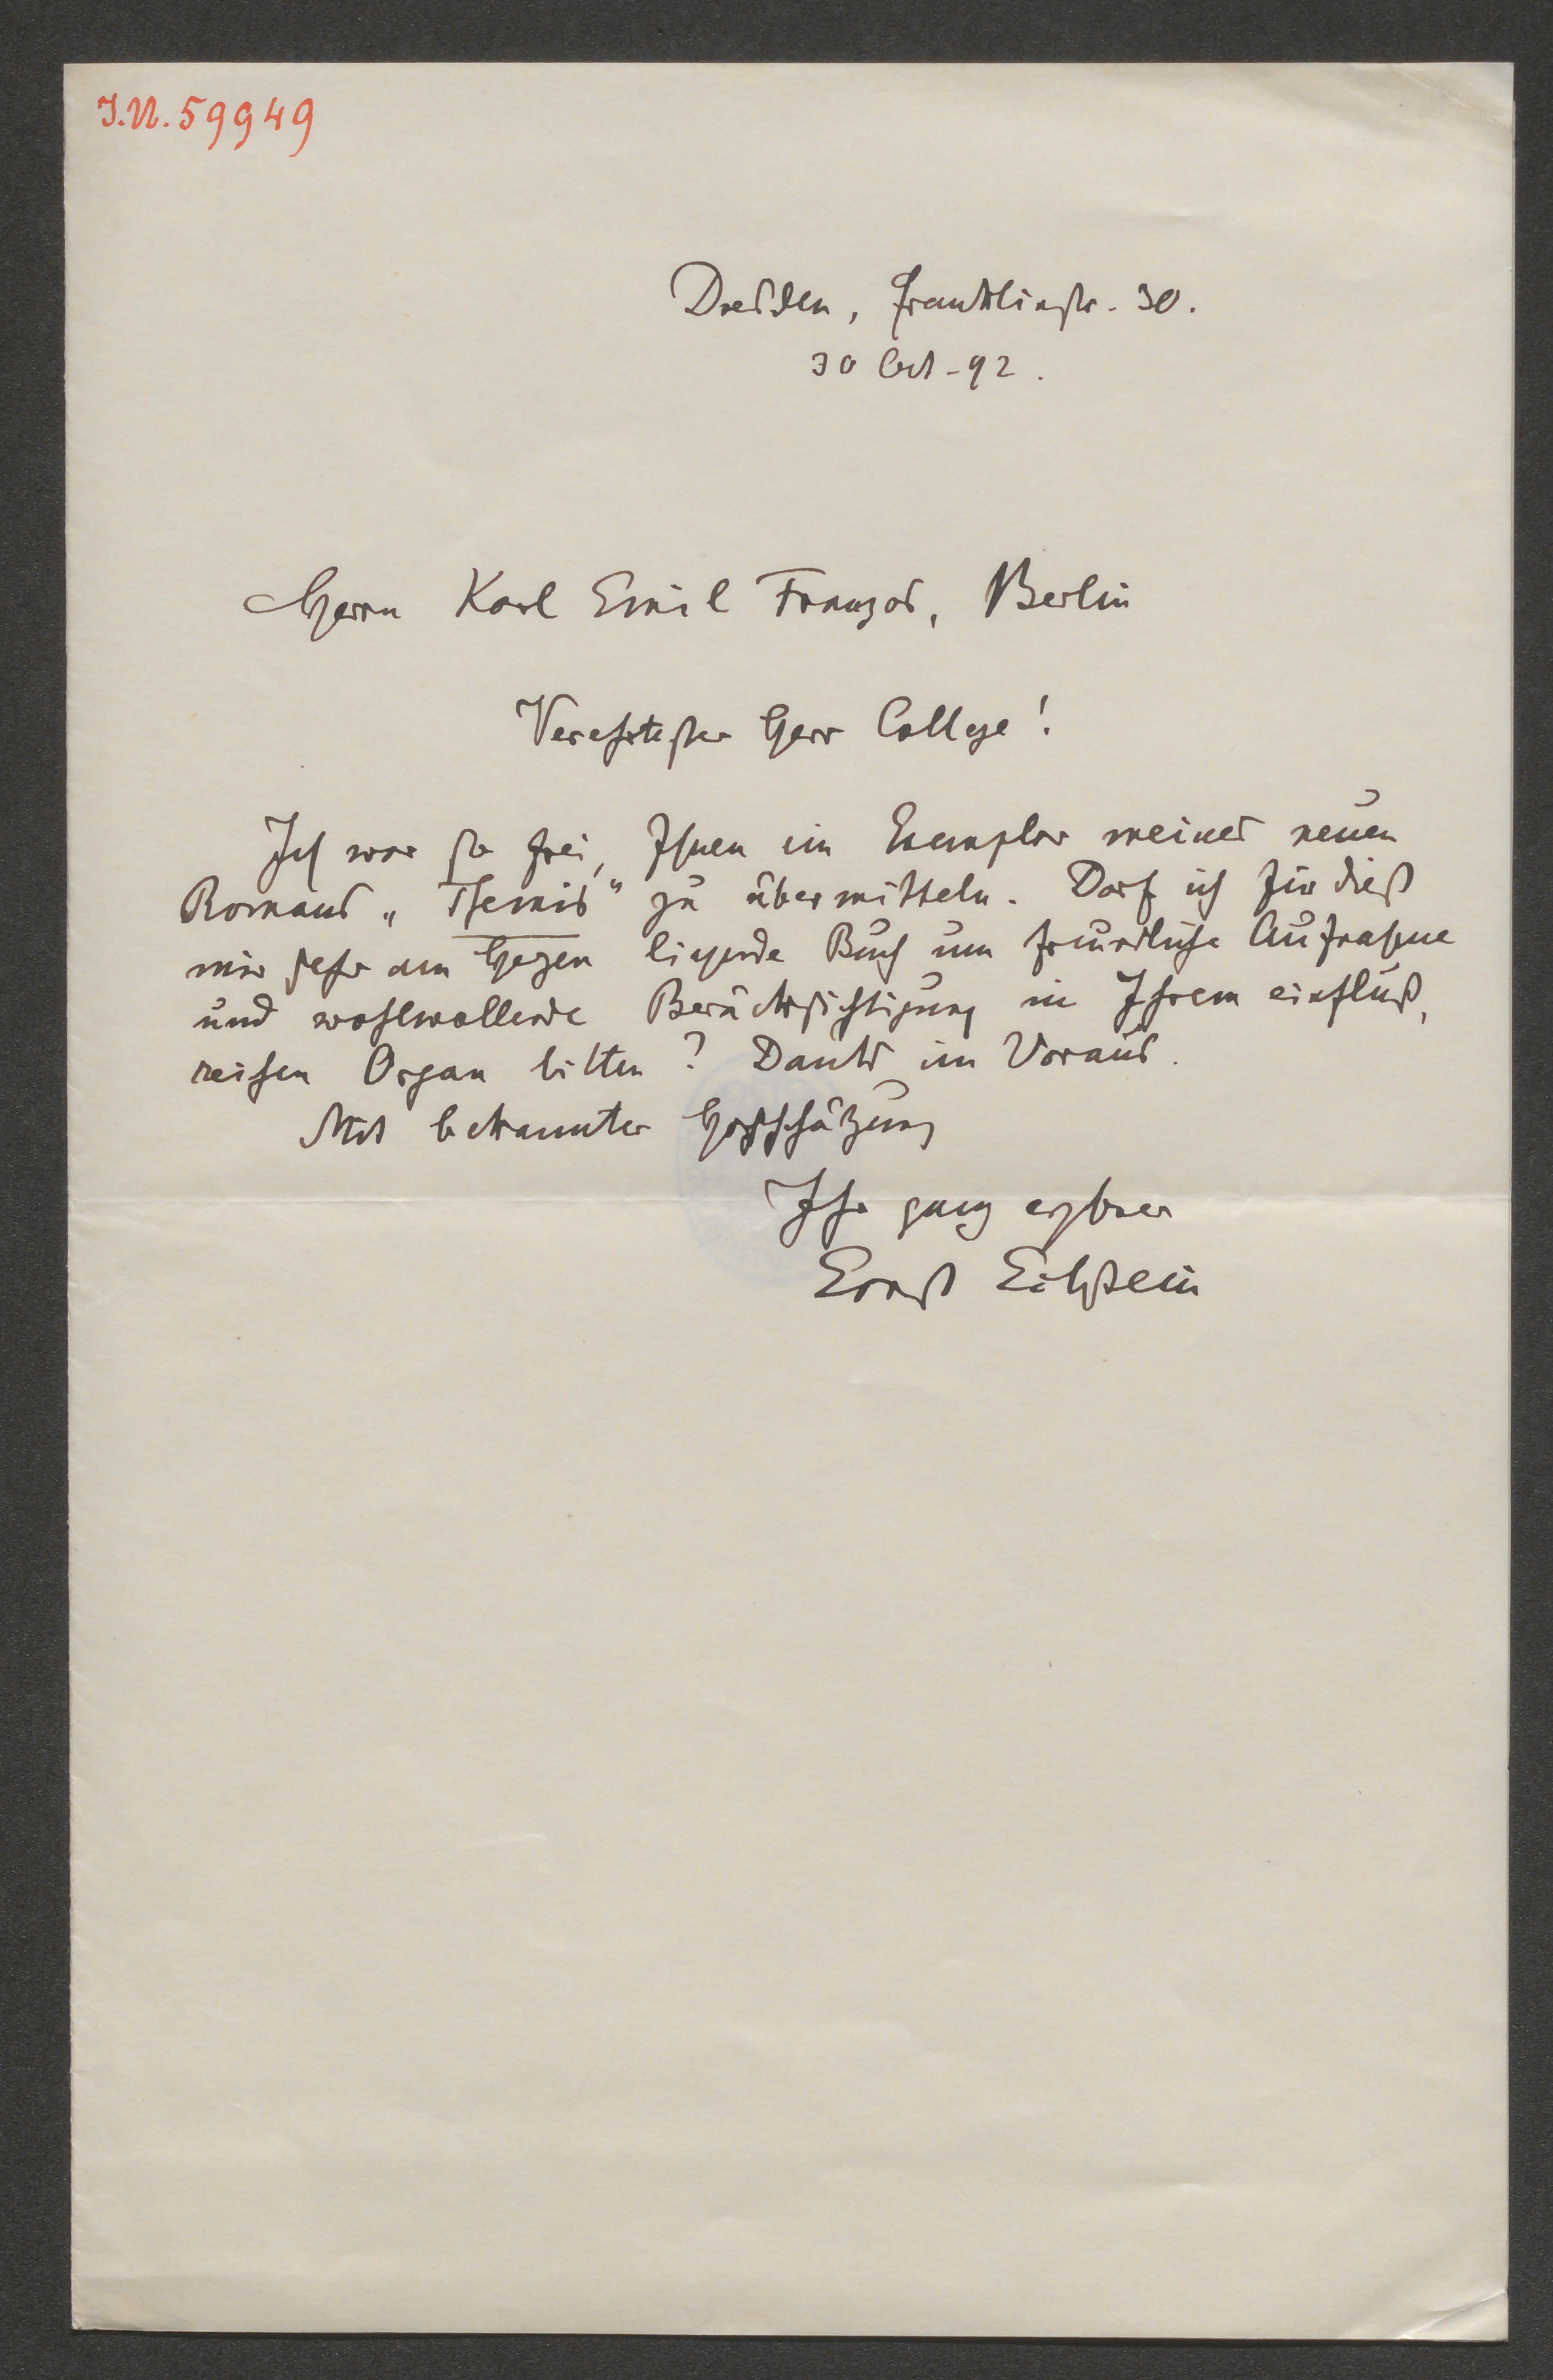 I.N. 59949
Dresden, Franklinstr. 30.
30 Oct. 92.
Herrn Karl Emil Franzos, Berlin
Verehrtester Herr College!
Ich war so frei, Ihnen ein Exemplar meines neuen
Romans „Themis" zu übermitteln. Darf ich für dieß
mir sehr am Herzen liegende Buch um freundliche Aufnahme
und wohlwollende Berücksichtigung in Ihrem einfluß-
reichen Organ bitten? Dank im Voraus.
Mit bekannter Hochschätzung
Ihr ganz ergbner
Ernst Eckstein